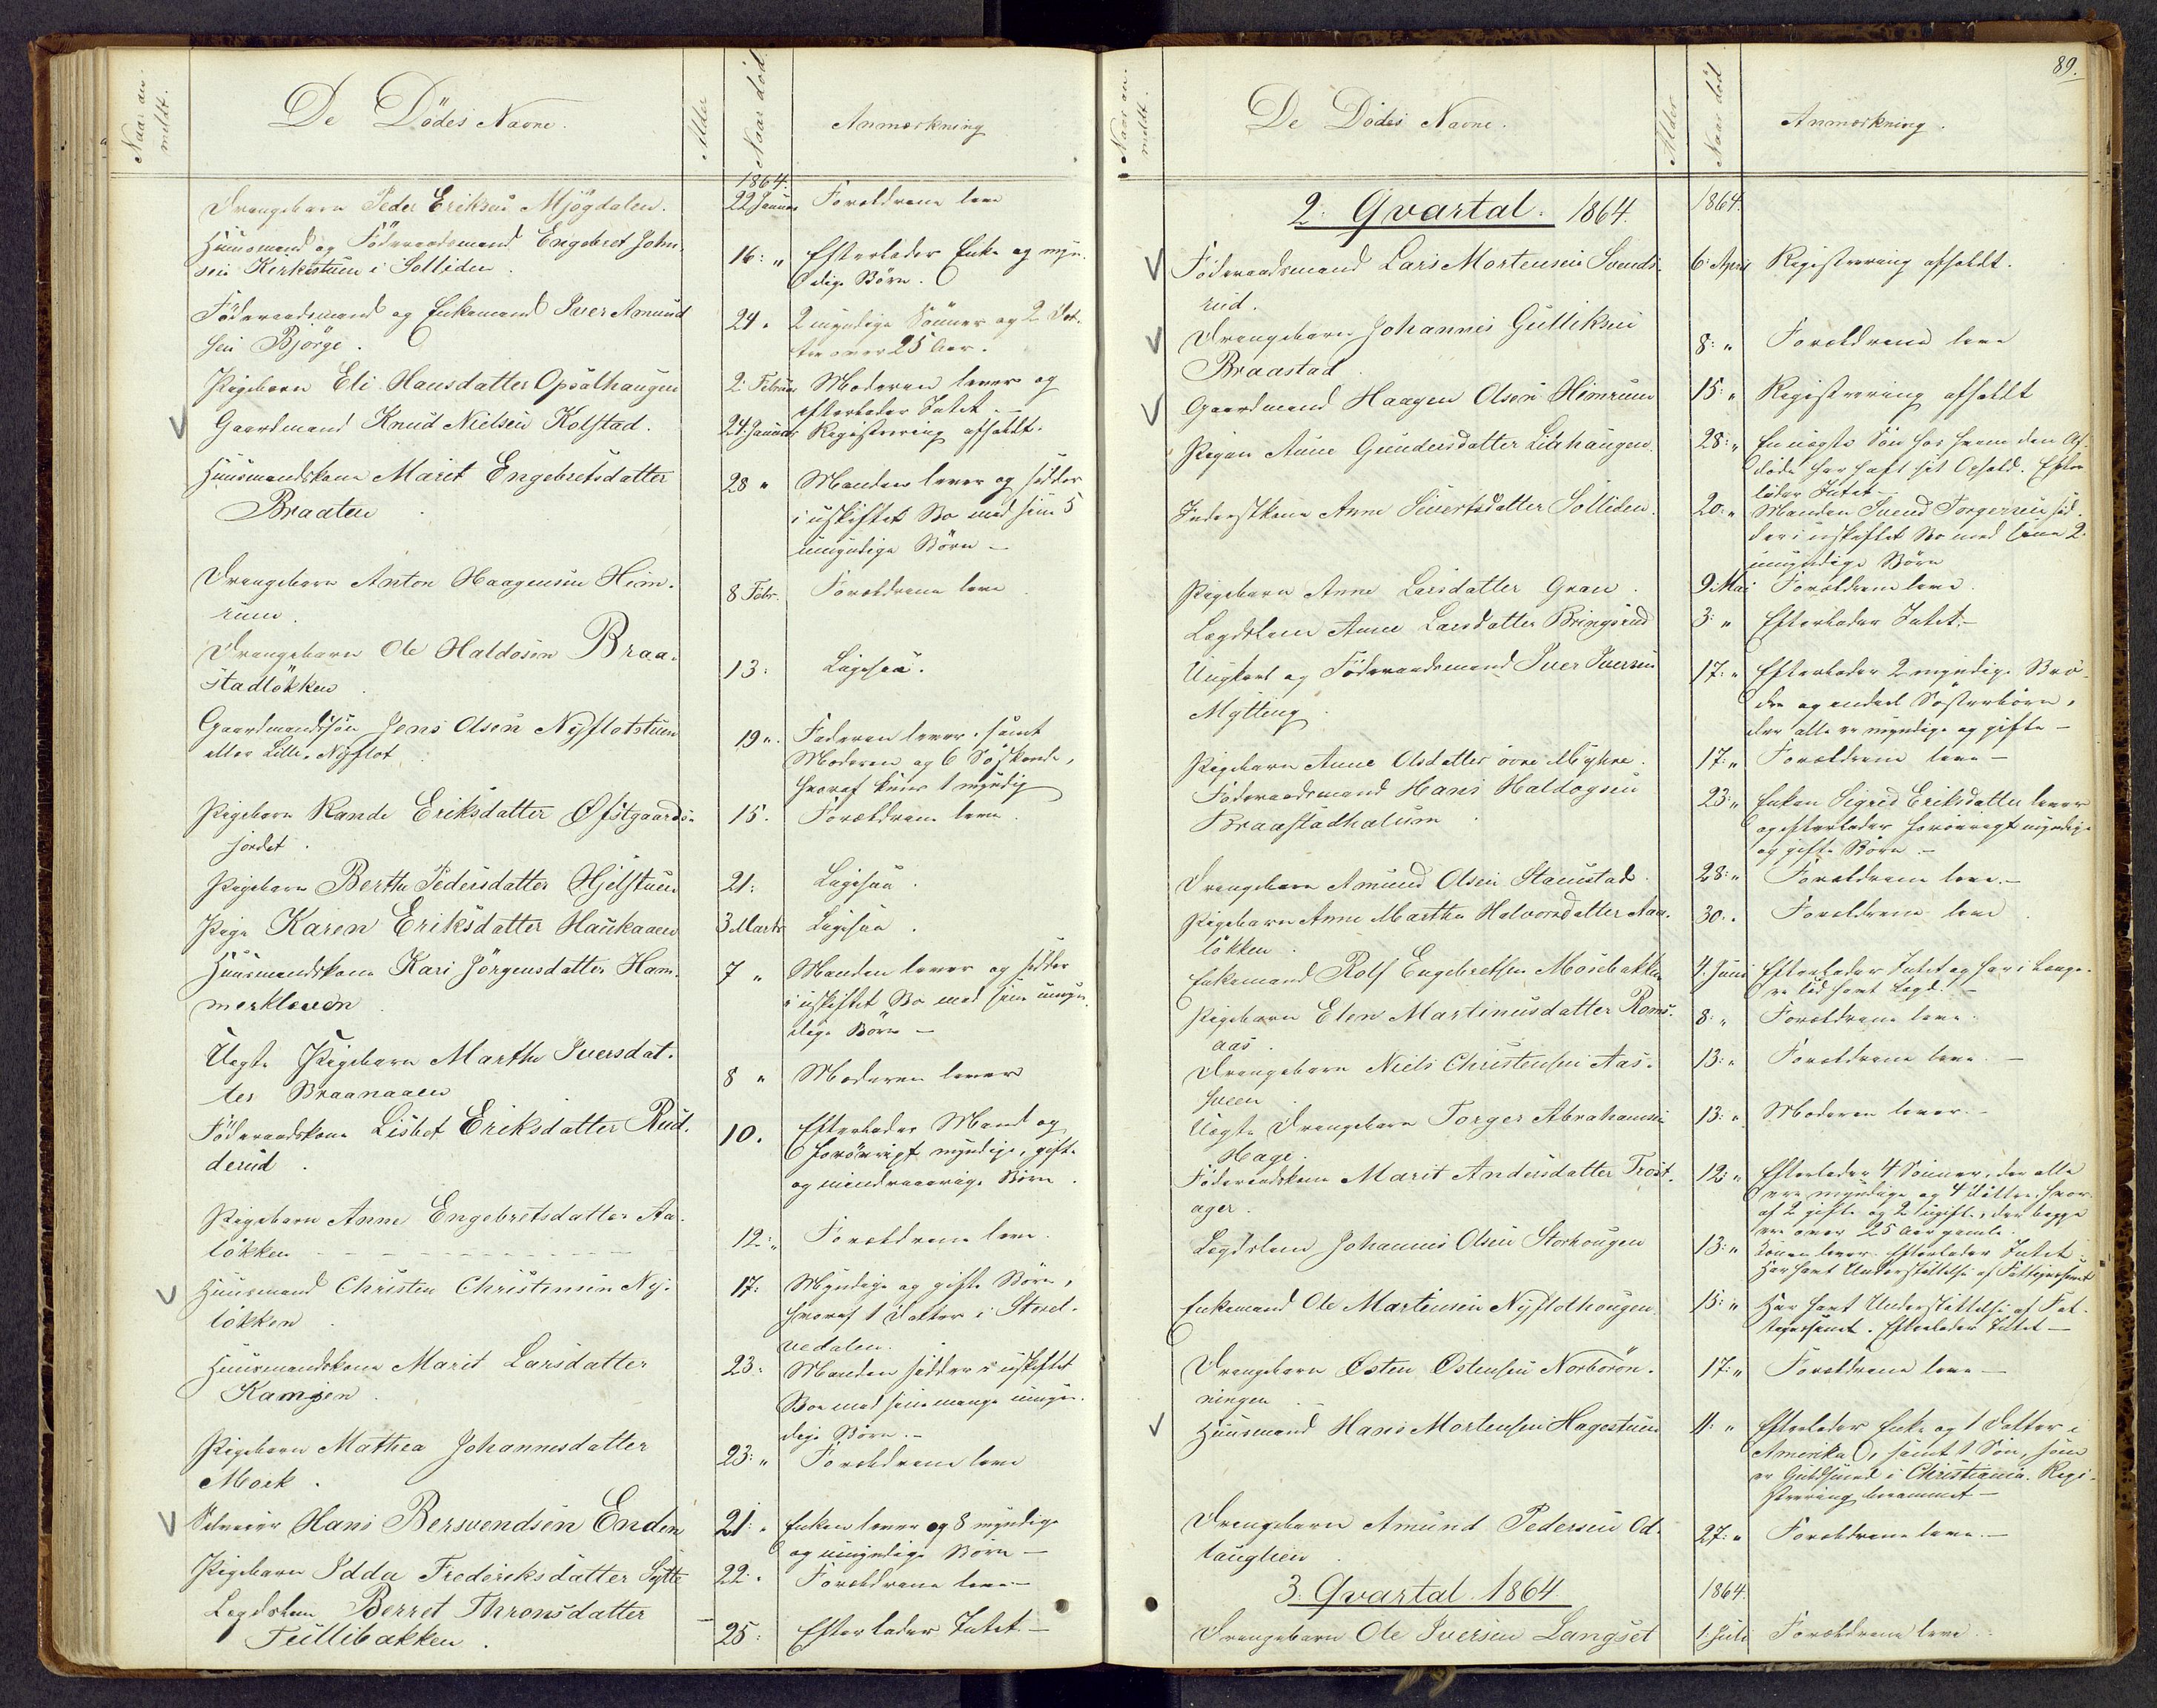 Naar an-
meldt.
De Dödes Navne.
Alder
Naar död
Anmærkning
1864.
Drengebarn Peder Eriksen Mjögdalen.
22 Januar
Forældrene leve
Huusmand og Föderaadsmand Engebret John-
sen Kirkestuen i Solliden.
16: "
Efterlader Enke og myn-
dige Börn.
Föderaadsmand og Enkemand Iver Amund
sen Bjørge.
24 "
2 myndige Sönner og 2 Döt-
tre over 25 Aar.
Pigebarn Eli Hansdatter Opsalhaugen
2. Februar
Moderen lever og
efterlader Intet.—
Gaardmand Knud Nielsen Kolstad.
24. Januar
Registrering afholdt.
Huusmandskone Marit Engebretsdatter
Braaten
28 "
Manden lever og sidder
i uskiftet Bo med sine 5
umyndige Börn —
Drengebarn Anton Haagensen Him-
rum.
8 Febr.
Forældrene leve
Drengebarn Ole Haldosen Braa-
stadlökken
13:
Ligesaa.
Gaardmandssön Jens Olsen Nyflotstuen
eller Lille-Nyflot
19 ".
Faderen lever, samt
Moderen og 6 Södskende,
hvoraf kuns 1 myndig
Pigebarn Rande Eriksdatter Øfstgaards-
jordet.
15.
Forældrene leve.
Pigebarn Berthe Pedersdatter Hjelstuen
21:
Ligesaa.
Pige Karen Eriksdatter Haukaaen
3 Marts
Ligesaa.
Huusmandskone Kari Jörgensdatter Ham-
merkleven
7 "
Manden lever og sidder
i uskiftet Bo med sine umyn-
dige Börn —
Uægte Pigebarn Marthe Iversdat-
ter Braanaaen
8 "
Moderen lever
Föderaadskone Lisbet Eriksdatter Rud-
derud.
10.
Efterlader Mand og
forövrigt myndige, gifte
og mindreaarige Börn.
Pigebarn Anne Engebretsdatter Aa-
lökken
12: "
Forældrene leve.
Huusmand Christen Christensen Ny-
lökken
17:
Myndige og gifte Börn,
hvoraf 1 Datter i Storel-
vedalen.
Huusmandskone Marit Larsdatter
Kampen.
23:
Manden sidder i uskiftet
Boe med sine mange umyn-
dige Börn.—
Pigebarn Mathea Johannesdatter
Moek.
23: "
Forældrene leve
Selveier Hans Bersvendsen Enden
21: "
Enken lever og 8 myndige
og umyndige Börn —
Pigebarn Idda Frederiksdatter Sytte
22: "
Forældrene leve —
Legdslem Berret Thronsdatter
Tullibakken.
25:
Efterlader Intet —
89.
Naar an-
meldt.
De Dödes Navne.
Alder
Naar död
Anmærkning.
2: Qvartal. 1864.
1864.
Föderaadsmand Lars Mortensen Svends-
rud.
6: April
Registrering afholdt.
Drengebarn Johannes Gulliksen
Braastad
8: "
Forældrene leve
Gaardmand Haagen Olsen Himrum
15: "
Registrering afholdt
Pigen Anne Gundersdatter Liahaugen.
28: "
En uægte Sön hos hvem den Af-
döde har havt sit Ophold. Efter
lader Intet —
Inderstkone Anne Sivertsdatter Solliden.
20: "
Manden Svend Torgersen sid-
der i uskiftet Bo med sine 2
umyndige Börn
Pigebarn Anne Larsdatter Gran.
9: Mai
Forældrene leve.
Lægdslem Anne Larsdatter Bringsrud
3: "
Efterlader Intet.—
Ungkarl og Föderaadsmand Iver Iversen
Mytting.
17: "
Efterlader 2 myndige Brö-
dre og endeel Sösterbörn,
der alle er myndige og gifte —
Pigebarn Anne Olsdatter övre Mykre.
17: "
Forældrene leve —
Föderaadsmand Hans Haldogsen
Braastadhalsen.
23: "
Enken Sigrid Eriksdatter lever
og efterlader forövrigt myndige
og gifte Börn —
Drengebarn Amund Olsen Staustad.
28: "
Forældrene leve.—
Pigebarn Anne Marthe Halvorsdatter Aaa-
lökken.
30. "
Forældrene leve
Enkemand Rolf Engebretsen Mosebakken
4. Juni
Efterlader Intet og har i længe-
re Tid havt Lægd. —
Pigebarn Elen Martinusdatter Roms-
aas.
8: "
Forældrene leve.
Drengebarn Niels Christensen Aas-
sveen.
13: "
Forældrene leve. —
Uægte Drengebarn Torger Abrahamsen
Hage.
13: "
Moderen lever.—
Föderaadskone Marit Andersdatter Trost-
ager.
12: "
Efterlader 4 Sönner, der alle
ere myndige og 4 Dötre, hvor-
af 2 gifte og 2 ugifte, der begge
ere over 25 Aar gamle.
Lægdslem Johannes Olsen Storhougen
13: "
Konen lever. Efterlader Intet.
Har havt Understöttelse af Fattigvæsenet
Enkemand Ole Martensen Nyflothougen.
15: "
Har havt Understöttelse af Fat-
tigvæsenet. Efterlader Intet —
Drengebarn Østen Østensen Norborön-
ningen
17: "
Forældrene leve —
Huusmand Hans Mortensen Hagestuen
11: "
Efterlader Enke og 1 Datter i
Amerika, samt 1 Sön, som
er Guldsmed i Christiania. Regi-
strering berammet —
Drengebarn Amund Pedersen Od-
lauglien
27: "
Forældrene leve.—
3. Qvartal. 1864
1864
Drengebarn Ole Iversen Langset
1. Juli
Forældrene leve.